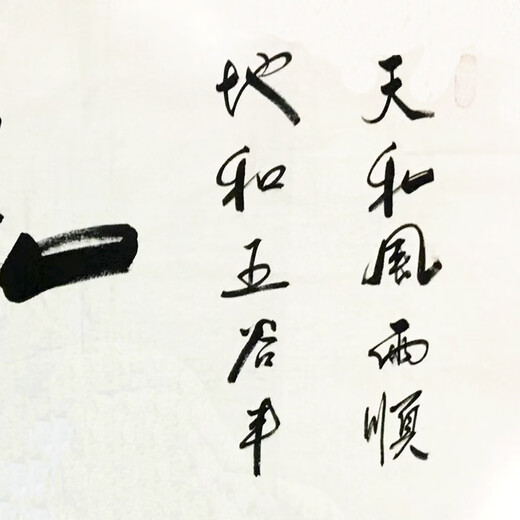 天和風雨順
地和五谷丰